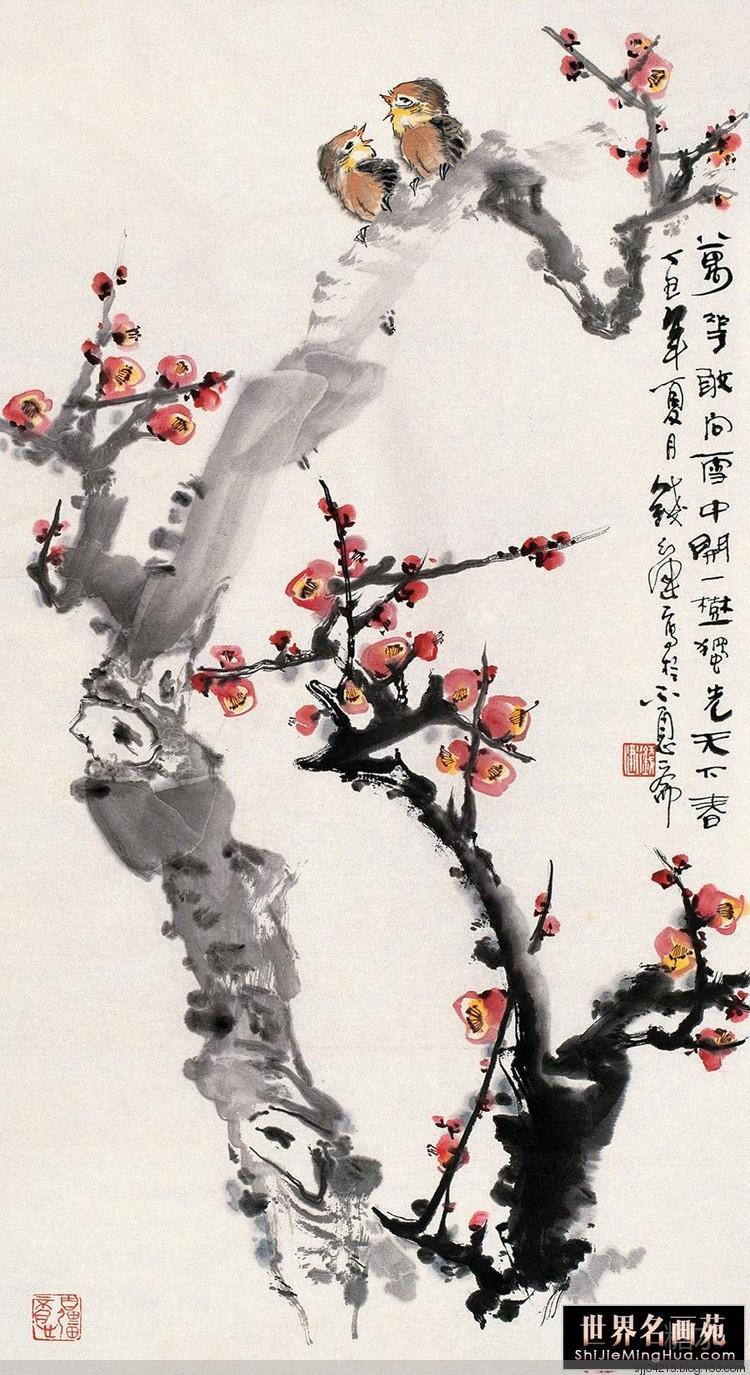 萬花敢向雪中開一樹獨先天下春
丁丑年夏月錢行健寫於不息齋
世界名画苑
ShiJieMingHua.com